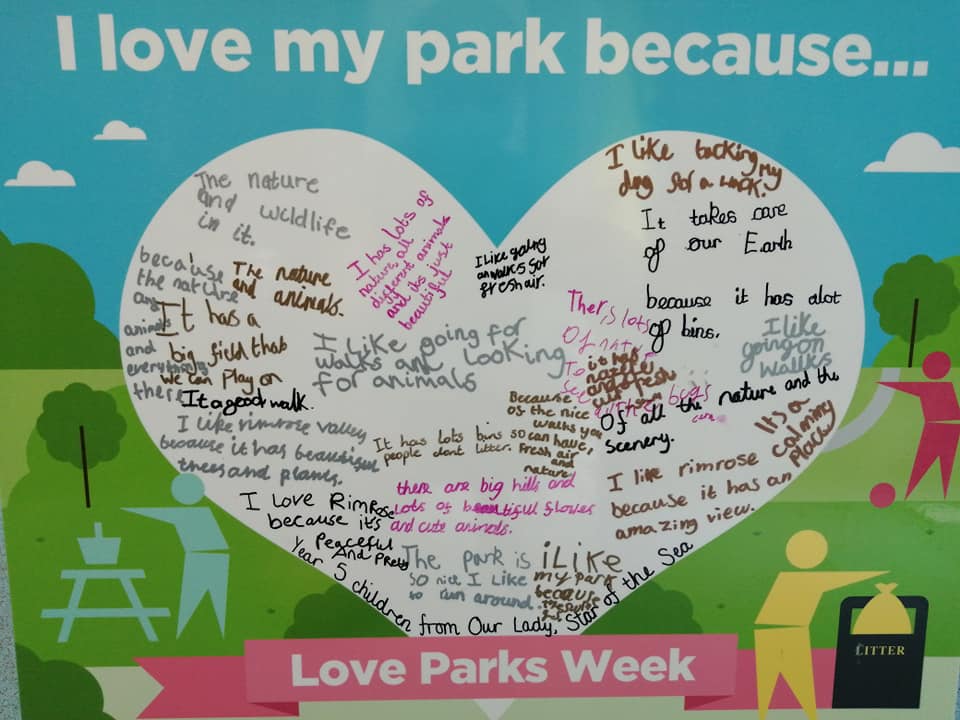 I love my park because...
The nature
and wildlife
in it.
I has lots of
nature, all
different animals
and its just
beautiful
I like going
on walks got
fresh air.
I like tacking my
dog for a wack.
It takes care
of our Earth
because it has alot
of bins.
because
the nature
any
animals
and
everything
there
The nature
and animals.
It has a
big field that
we can play on
It a good walk.
I Like going for
walks and Looking
for animals
Ther is lots
Of
To
See
bugs
it has
and fresh
air
I like
going on
walks
Of all the nature and the
scenery.
Its a
calming
place
I like rimrose valley
because it has beautiful
trees and plants.
It has lots bins so
people dont litter.
Because
of the nice
walks you
can have,
Fresh air
and
nature
there are big hills and
Lots of beautiful flowers
and cute animals.
I like rimrose
because it has an
amazing view.
I Love Rimrose
because it's
Peaceful
And
The park is
so nice I Like
to run around.
iLike
my park
Year 5 children from Our Lady, Star of the Sea
LITTER
Love Parks Week